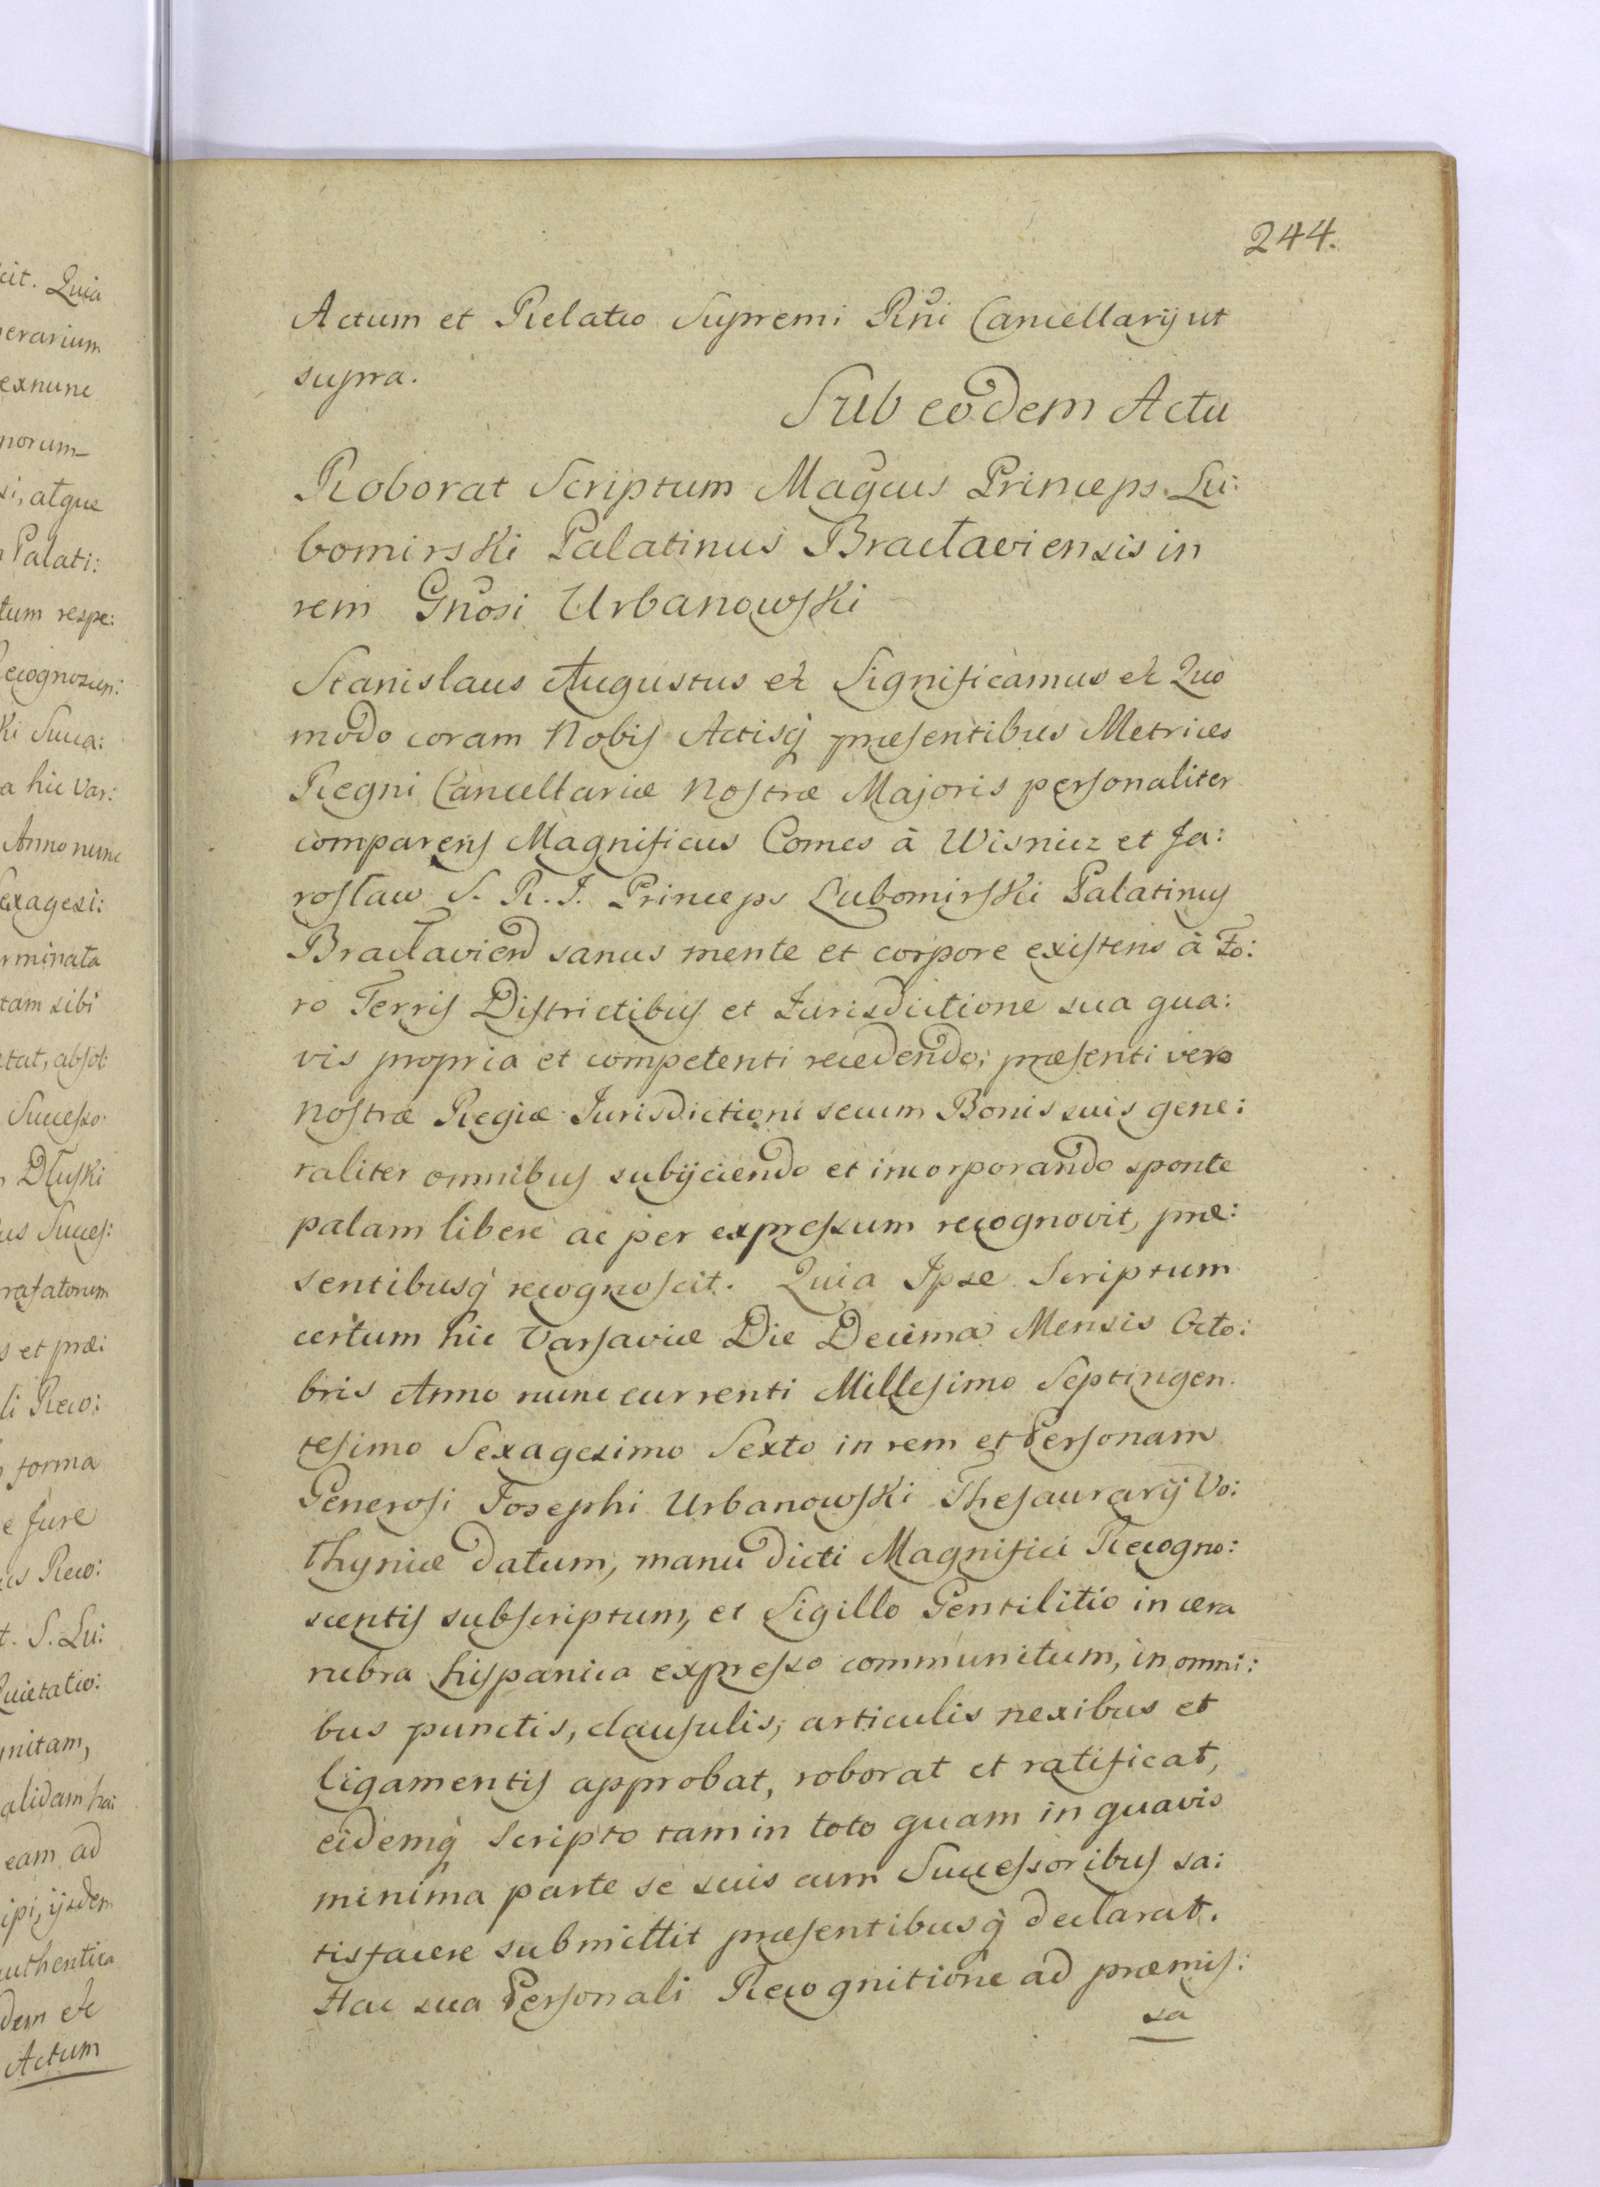 244.
Actum et Relatio Supremi Rni Cancellarij ut
supra.
Sub eodem Actu
Roborat Scriptum Magcus Princeps Lu:
bomirski Palatinus Braclaviensis in
rem Gnosi Urbanowski
Stanislaus Augustus etc Significamus etc Quo
modo coram Nobis Actisq praesentibus Metrices
Regni Cancellariae Nostrae Majoris personaliter
comparens Magnificus Comes à Wisnicz et Ja:
roslaw S. R. I. Princeps Lubomirski Palatinus
Braclavien sanus mente et corpore existens à Fo:
ro Terris Districtibus et Jurisdictione sua qua:
vis propria et competenti recedendo; praesenti vero
Nostrae Regiae Jurisdictioni secum Bonis suis gene:
raliter omnibus subijciendo et incorporando sponte
palam libere ac per expressum recognovit, prae:
sentibusq recognoscit. Quia Ipse Scriptum
certum hic Varsaviae Die Decima Mensis Octo:
bris Anno nunc currenti Millesimo Septingen
tesimo Sexagesimo Sexto in rem et Personam
Generosi Josephi Urbanowski Thesaurarij Vo:
lhyniae datum, manu dicti Magnifici Recogno:
scentis subscriptum, et Sigillo Gentilitio in cera
rubra hispanica expresso communitum, in omni:
bus punctis, clausulis, articulis nexibus et
ligamentis approbat, roborat et ratificat,
eidemq Scripto tam in toto quam in quavis
minima parte se suis cum Successoribus sa:
tisfacere submittit praesentibusq declarat.
Hac sua Personali Recognitione ad praemis:
sa
cit. Quia
exnunc
norum
si, atque
Palati:
tum respe:
Recognoscen:
ki Succa:
a hic Var:
Anno nunc
Sexagesi:
rminata
tam sibi
Successo
Dluski
us Succes:
s et prae:
li Reco:
forma
e Jure
t. S. Lu:
Quietatio:
gnitam,
alidam ha:
eam ad
authentica
dem etc
Actum